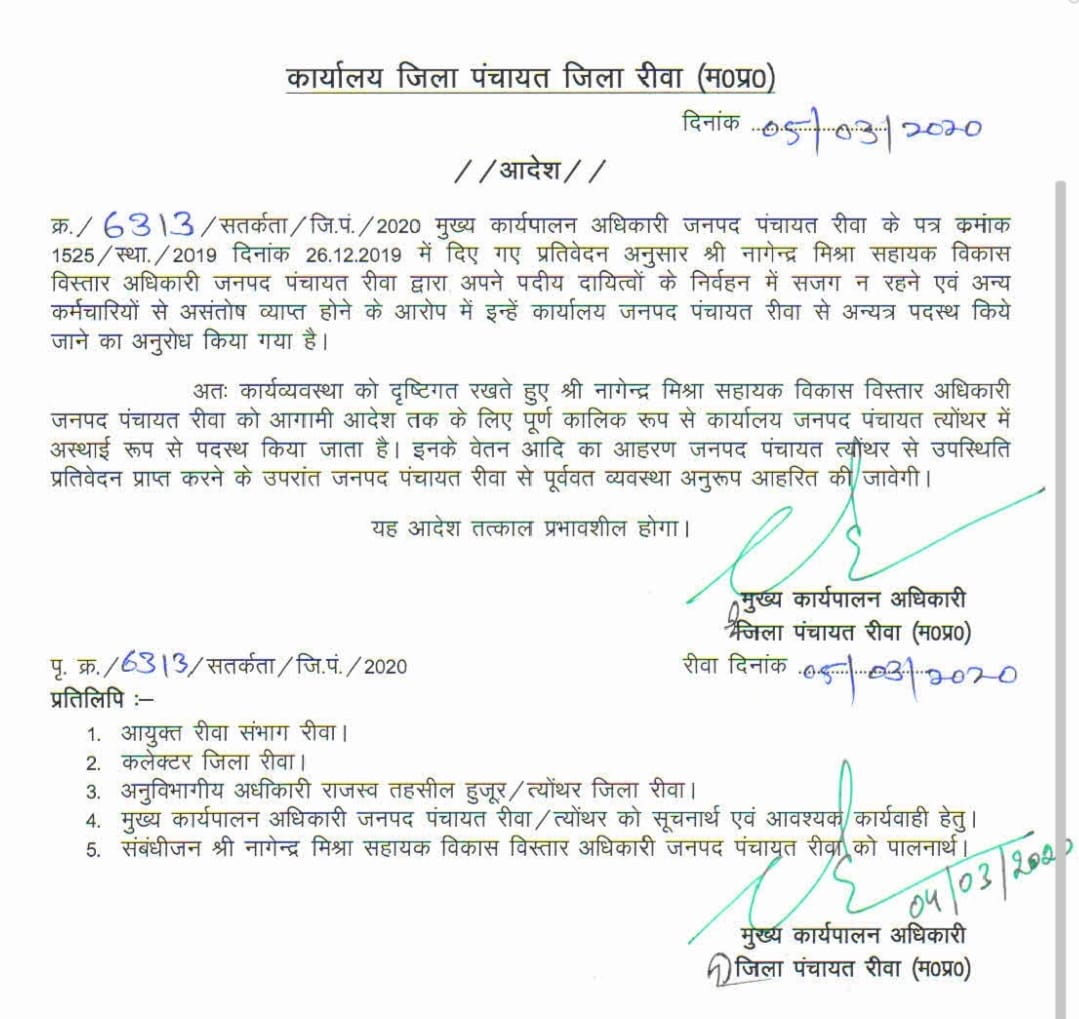 कार्यालय जिला पंचायत जिला रीवा (म0प्र0)
दिनांक 05/03/2020
//आदेश//
क्र./6313/सतर्कता/जि.पं./2020 मुख्य कार्यपालन अधिकारी जनपद पंचायत रीवा के पत्र कमांक
1525/स्था./2019 दिनांक 26.12.2019 में दिए गए प्रतिवेदन अनुसार श्री नागेन्द्र मिश्रा सहायक विकास
विस्तार अधिकारी जनपद पंचायत रीवा द्वारा अपने पदीय दायित्वों के निर्वहन में सजग न रहने एवं अन्य
कर्मचारियों से असंतोष व्याप्त होने के आरोप में इन्हें कार्यालय जनपद पंचायत रीवा से अन्यत्र पदस्थ किये
जाने का अनुरोध किया गया है।
अतः कार्यव्यवस्था को दृष्टिगत रखते हुए श्री नागेन्द्र मिश्रा सहायक विकास विस्तार अधिकारी
जनपद पंचायत रीवा को आगामी आदेश तक के लिए पूर्ण कालिक रूप से कार्यालय जनपद पंचायत त्योंथर में
अस्थाई रूप से पदस्थ किया जाता है। इनके वेतन आदि का आहरण जनपद पंचायत त्योंथर से उपस्थिति
प्रतिवेदन प्राप्त करने के उपरांत जनपद पंचायत रीवा से पूर्ववत व्यवस्था अनुरूप आहरित की जावेगी।
यह आदेश तत्काल प्रभावशील होगा।
मुख्य कार्यपालन अधिकारी
जिला पंचायत रीवा (म0प्र0)
पृ. क्र./6313/सतर्कता/जि.पं./2020
रीवा दिनांक 05/03/2020
प्रतिलिपि :–
1. आयुक्त रीवा संभाग रीवा।
2. कलेक्टर जिला रीवा।
3. अनुविभागीय अधीकारी राजस्व तहसील हुजूर/त्योंथर जिला रीवा।
4. मुख्य कार्यपालन अधिकारी जनपद पंचायत रीवा/त्योंथर को सूचनार्थ एवं आवश्यक कार्यवाही हेतु।
5. संबंधीजन श्री नागेन्द्र मिश्रा सहायक विकास विस्तार अधिकारी जनपद पंचायत रीवा को पालनार्थ।
04/03/2020
मुख्य कार्यपालन अधिकारी
जिला पंचायत रीवा (म0प्र0)